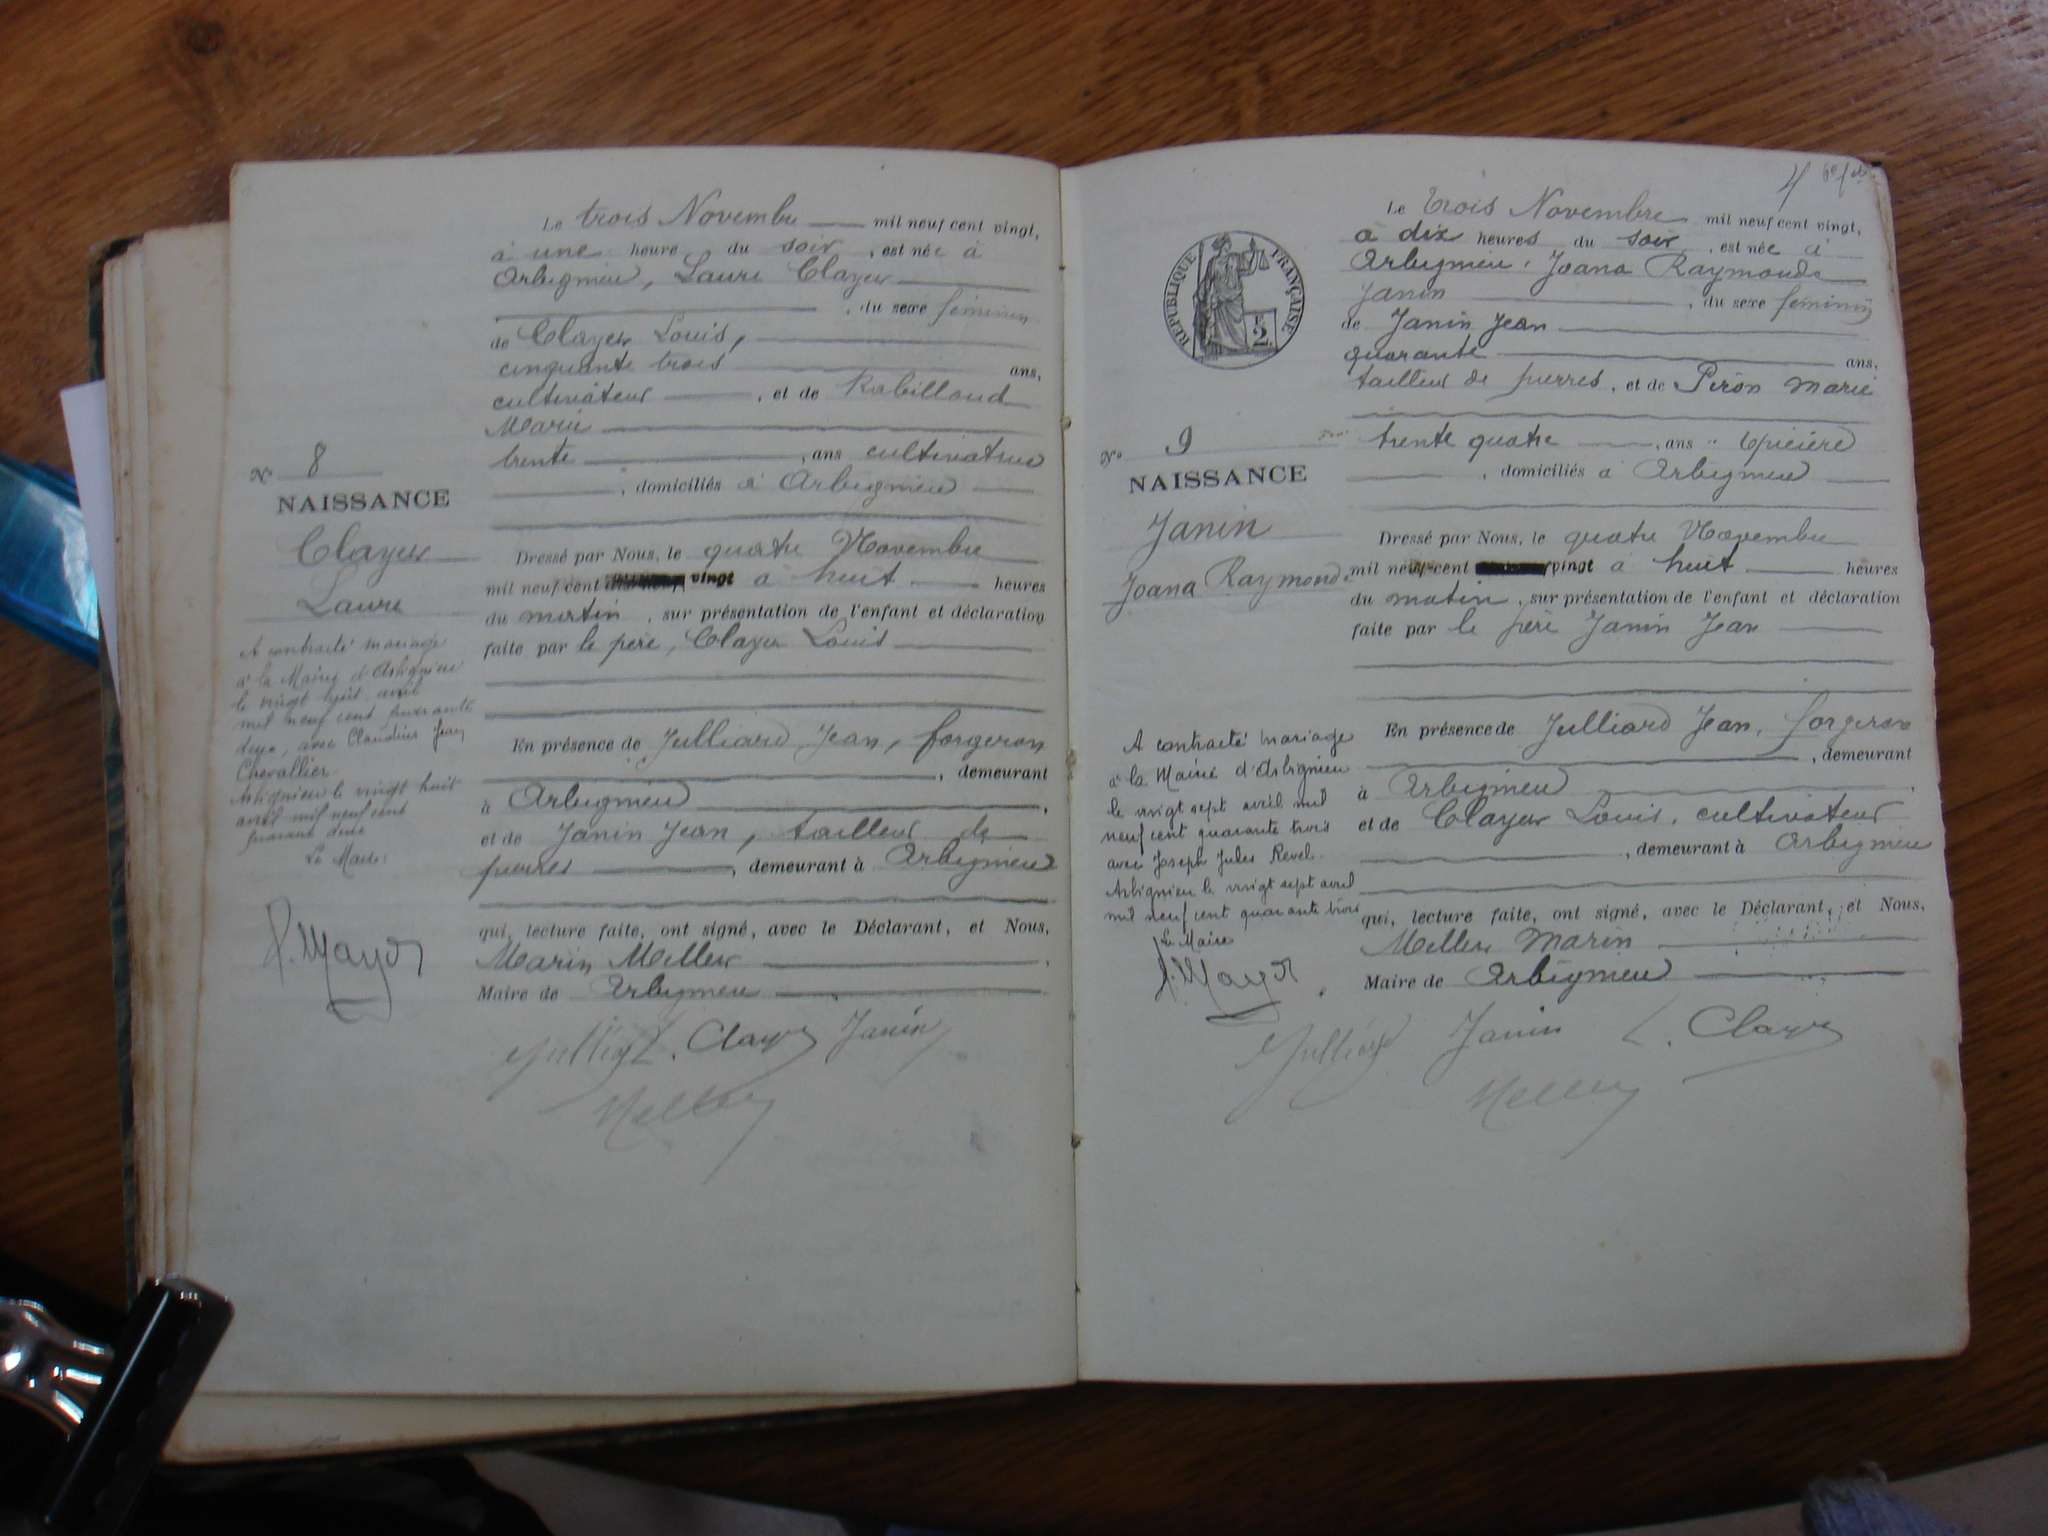 Le trois Novembre mil neuf cent vingt,
à une heure du soir, est née à
Arbignieu, Laure Clayeux
, du sexe féminin
de Clayeux Louis,
cinquante trois ans,
cultivateur, et de Rabilloud
Marie
trente, ans cultivatrice
, domiciliés à Arbignieu
N° 8
NAISSANCE
Clayeux
Laure
Dressé par Nous, le quatre Novembre
mil neuf cent vingt à huit heures
du matin, sur présentation de l'enfant et déclaration
faite par le père, Clayeux Louis
En présence de Julliard Jean, forgeron
, demeurant
à Arbignieu
et de Janin Jean, tailleur de
pierres, demeurant à Arbignieu
qui, lecture faite, ont signé, avec le Déclarant, et Nous,
Marin Mellex
Maire de Arbignieu
A contracté mariage
à la Mairie d'Arbignieu
le vingt huit avril
mil neuf cent quarante
deux, avec Claudius Jean
Chevallier.
Arbignieu le vingt huit
avril mil neuf cent
quarante deux
Le Maire:
Clayeux Janin
4
Le trois Novembre mil neuf cent vingt,
à dix heures du soir, est née à
Arbignieu, Joana Raymonde
Janin, du sexe féminin
de Janin Jean
quarante ans,
tailleur de pierres, et de Péron Marie
trente quatre, ans épicière
, domiciliés à Arbignieu
RÉPUBLIQUE FRANÇAISE
2
N° 9
NAISSANCE
Janin
Joana Raymonde
Dressé par Nous, le quatre Novembre
mil neuf cent vingt à huit heures
du matin, sur présentation de l'enfant et déclaration
faite par le père Janin Jean
En présence de Julliard Jean, forgeron
, demeurant
à Arbignieu
et de Clayeux Louis, cultivateur
, demeurant à Arbignieu
qui, lecture faite, ont signé, avec le Déclarant, et Nous,
Mellex Marin
Maire de Arbignieu
A contracté mariage
à la Mairie d'Arbignieu
le vingt sept avril mil
neuf cent quarante trois
avec Joseph Jules Revel.
Arbignieu le vingt sept avril
mil neuf cent quarante trois
Le Maire
Janin L. Clayeux